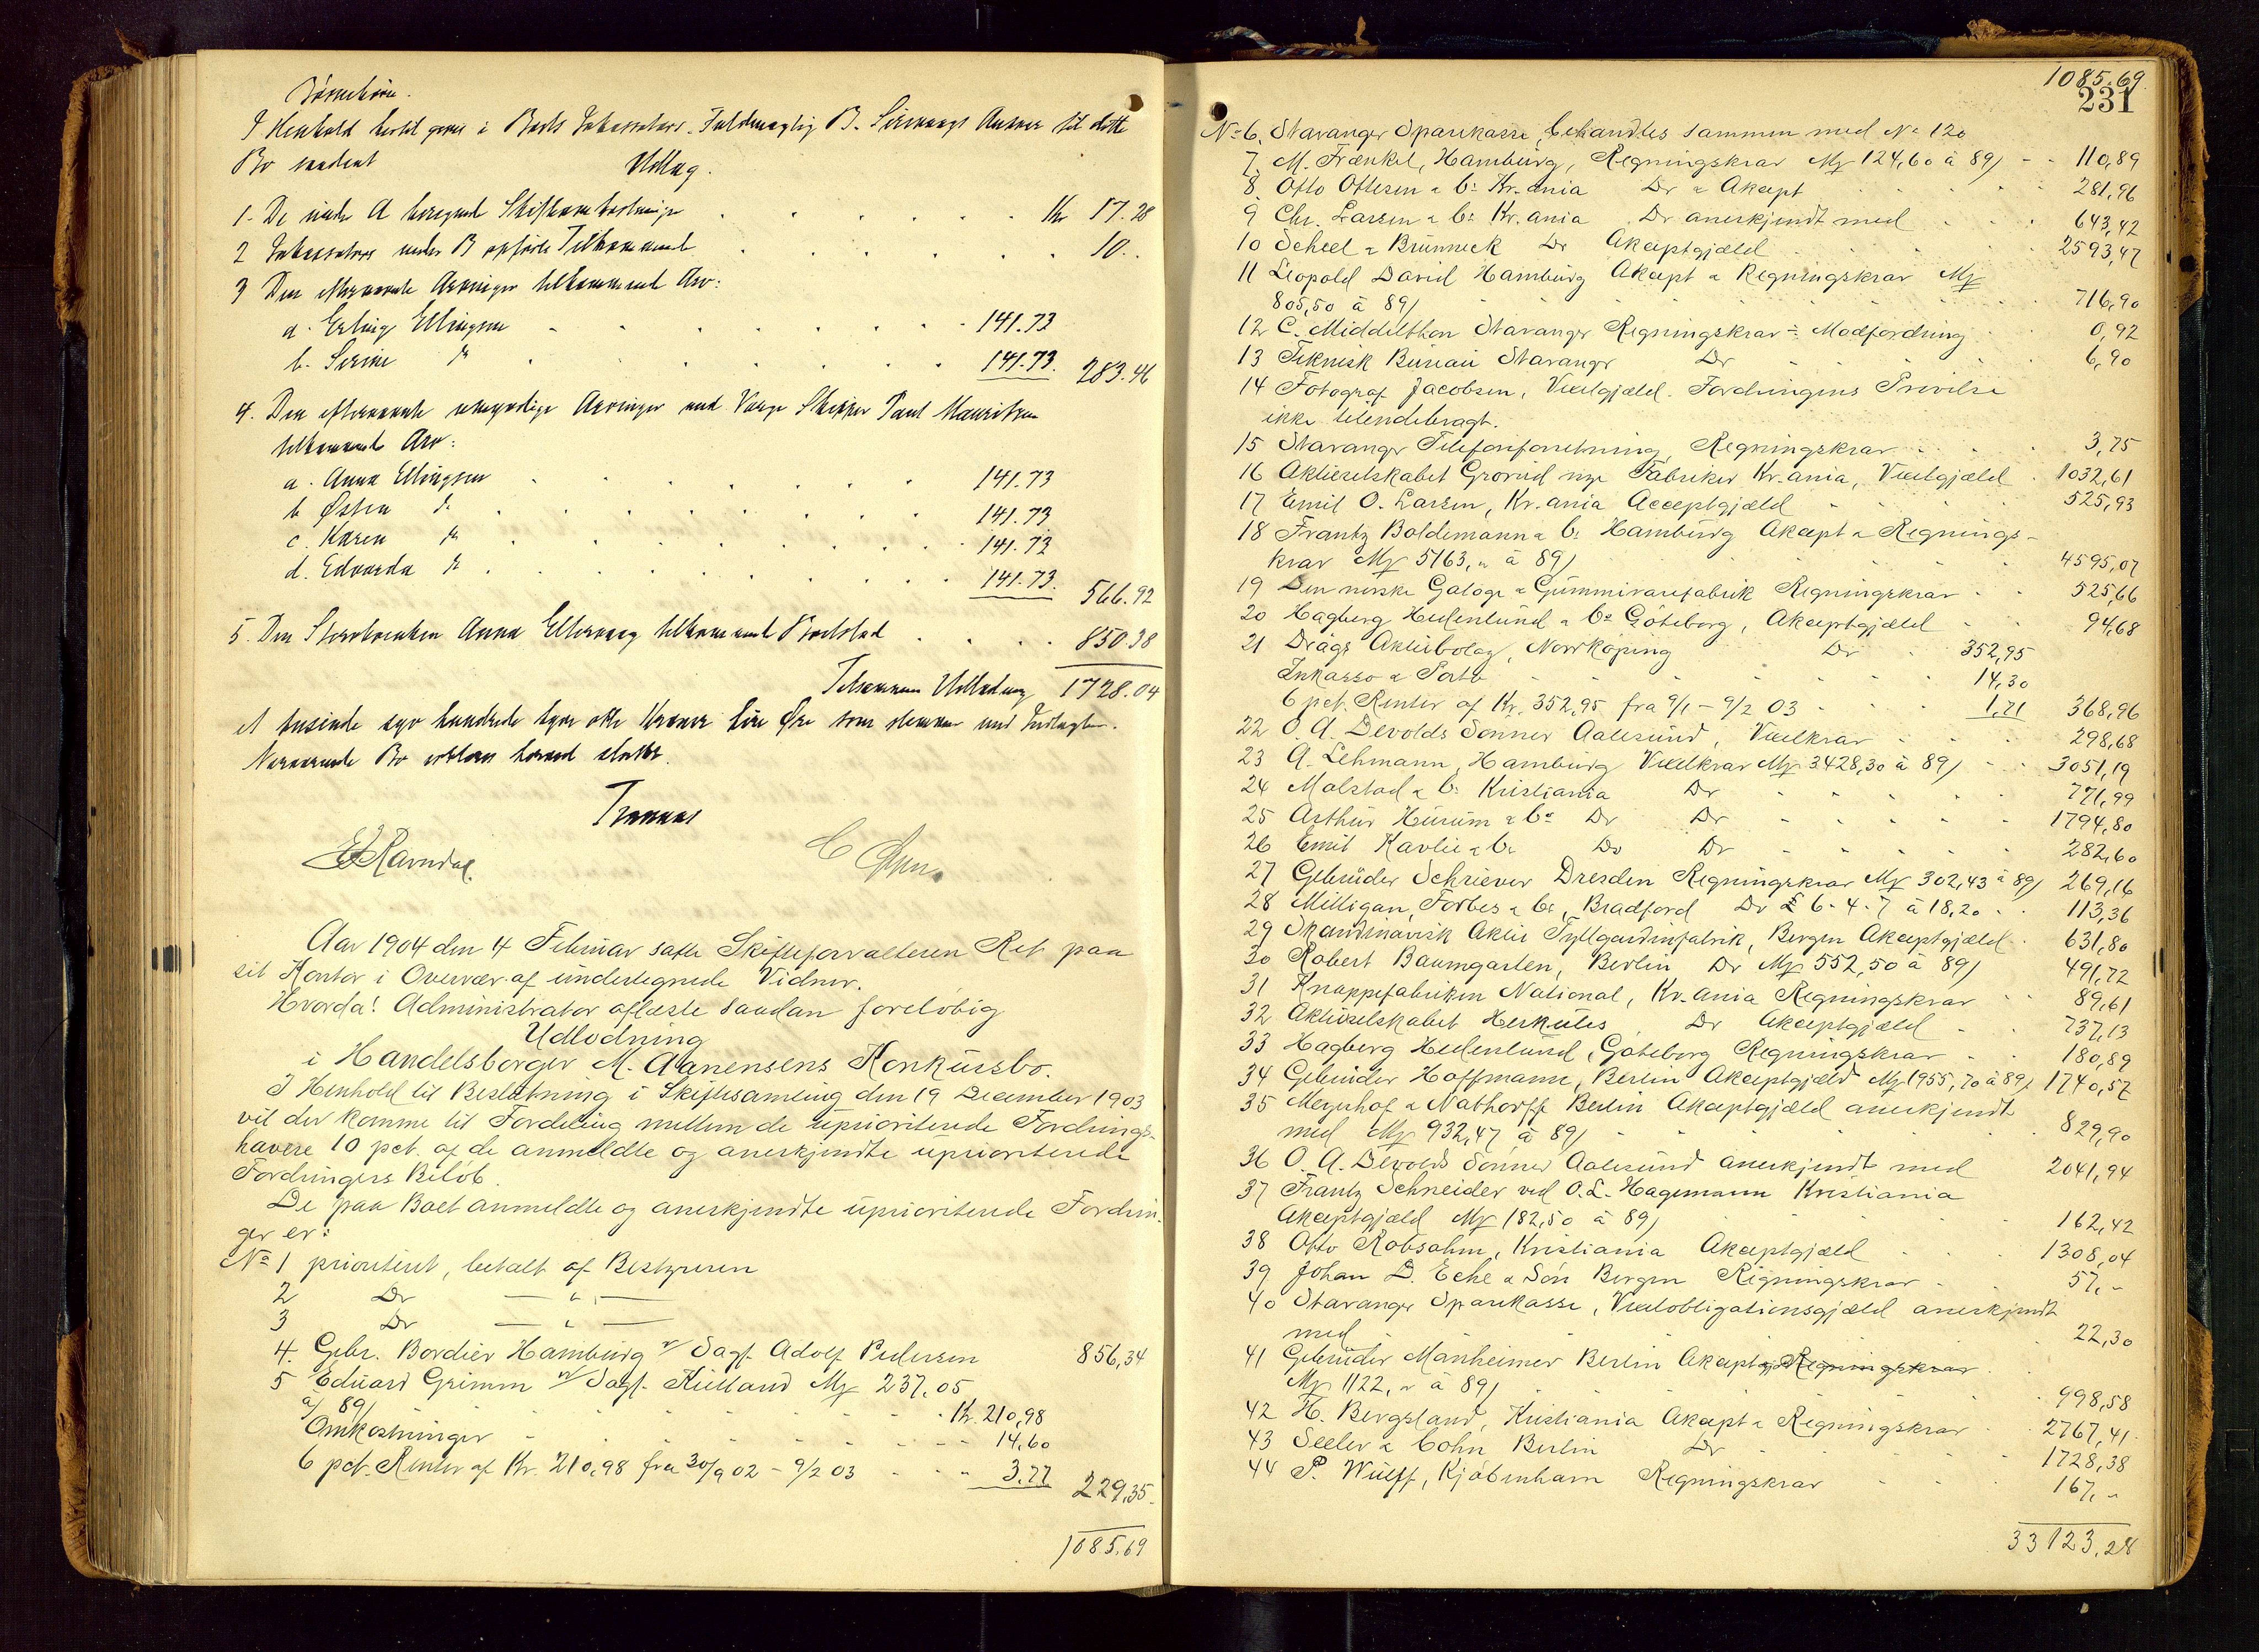 I Henhold hertil gives i Boets Inkassators Fuldmægtig B. Sirevaags Ansvar til dette
Bo saadant
Udlæg.
1. De under A beregnede Skifteomkostninger Kr 17.28
2 Inkassators under B opførte Tilkommende 10..
3 Den efternævnte Arvinger tilkommende Arv:
a. Erling Ellingsen 141.73
b. Serine Do 141.73. 283.46
4. Den efternævnte umyndige Arvinger ved Værge Skipper Paul Mauritzen
tilkommende Arv:
a. Anna Ellingsen 141.73
b Østen Do 141.73
c. Karen Do 141.73
d. Edvarda Do 141.73. 566.92
5. Den Sterboenken Anna tilkommende Boeslod 850.38
Tilsammen Udlodning 1728.04
et tusinde syv hundrede tyve otte Kroner fire Øre som stemmer med Indtægten.
Nærværende Bo erklæres hermed sluttet.
E Ravndal.
Aar 1904 den 4 Februar satte Skifteforvalteren Ret paa
sit Kontor i Overvær af undertegnede Vidner.
Hvorda! Administrator aflæste saadan foreløbig
Udlodning
i Handelsborger M. Aanensens Konkursbo.
I Henhold til Beslutning i Skiftesamling den 19 December 1903
vil der komme til Fordeling mellem de uprioriterede Fordrings-
havere 10 pct. af de anmeldte og anerkjendte uprioriterede
Fordringers Beløb.
De paa Boet anmeldte og anerkjendte uprioriterede Fordrin-
ger er:
No 1 prioriteret, betalt af Bestyreren
2 Do — " —
3 Do — " —
4. Gebr. Bordier Hamburg v/ Sagf. Adolf Pedersen 856,34
5 Eduard Grimm v/ Sagf. Kielland Mk 237,05
a/ 89/ Kr. 210,98
Omkostninger 14,60
6 pct. Renter af Kr. 210,98 fra 30/9 02 - 9/2 03 3.77 229,35.
1085.69
1085,69
231
No 6. Stavanger Sparekasse, behandles sammen med No 120
7. M. Frænkel, Hamburg, Regningskrav Mk 124,60 à 89/ 110,89
8. Otto Ottesen & Co Kr.ania Do & Akcept 281,96
9 Chr. Larsen & Co Kr.ania Do anerkjendt med 643,42
10 Scheel & Brünneck Do Akceptgjæld 2593,47
11 Leopold David Hamburg Akcept & Regningskrav Mk
805,50 à 89/ 716,90
12 C. Middelthon Stavanger Regningskrav ÷ Modfordring 0,92
13 Teknisk Bureau Stavanger Do 6,90
14 Fotograf Jacobsen, Vexelgjæld. Fordringens Prøvelse
ikke tilendebragt.
15 Stavanger Telefonforretning, Regningskrav 3,75
16 Aktieselskabet Grorud nye Fabriker Kr.ania, Vexelgjæld 1032,61
17 Emil O. Larsen, Kr.ania Acceptgjæld 525,93
18 Frantz Boldemann & Co Hamburg Akcept & Regnings-
krav Mk 5163,„ à 89/ 4595,07
19 Den norske Galoge & Gummivarefabrik Regningskrav 525,66
20 Hagberg Hedenlund & Co Göteborg, Akceptgjæld 94,68
21 Drägs Aktiebolag, Norrköping Do 352,95
Inkasso & Porto 14,30
6 pct. Renter af Kr. 352,95 fra 9/1 - 9/2 03 1,71 368,96
22 O. A. Devolds Sønner Aalesund, Vexelkrav 298,68
23 A. Lehmann, Hamburg Vexelkrav Mk 3428,30 à 89/ 3051,19
24 Molstad & Co Kristiania Do 771,99
25 Arthur Husum & Co Do Do 1794,80
26 Emil Kavlie & Co Do Do 282,60
27 Gebrüder Schriever Dresden Regningskrav Mk 302,43 à 89/ 269,16
28 Milligan, Forbes & Co, Bradford Do £ 6-4-7 à 18,20 113,36
29 Skandinavisk Aktie Tyllgardinfabrik, Bergen Akceptgjæld 631,80
30 Robert Baumgarten, Berlin Do Mk 552,50 à 89/ 491,72
31 Knappefabriken National, Kr.ania Regningskrav 89,61
32 Aktieselskabet Herkules, Do Akceptgjæld 737,13
33 Hagberg Hedenlund, Göteborg Regningskrav 180,89
34 Gebrüder Hoffmann, Berlin Akceptgjæld Mk 1955,70 à 89/ 1740,57
35 Meyerhof & Nathorff Berlin Akceptgjæld anerkjendt
med Mk 932,47 à 89/ 829,90
36 O. A. Devolds Sønner Aalesund anerkjendt med 2041,94
37 Frantz Schneider ved O. L. Hagemann Kristiania
Akceptgjæld Mk 182,50 à 89/ 162,42
38 Otto Robsahm, Kristiania Akceptgjæld 1308,04
39 Johan D. Eche & Søn Bergen Regningskrav 57,„
40 Stavanger Sparekasse, Vexelobligationsgjæld anerkjendt
med 22,30
41 Gebrüder Manheimer Berlin Akcept & Regningskrav
Mk 1122,„ à 89/ 998,58
42 H. Bergsland, Kristiania Akcept & Regningskrav 2767,41
43 Seeler & Cohn Berlin Do 1728,38
44 P. Wulff, Kjøbenhavn Regningskrav 167,„
33123,28